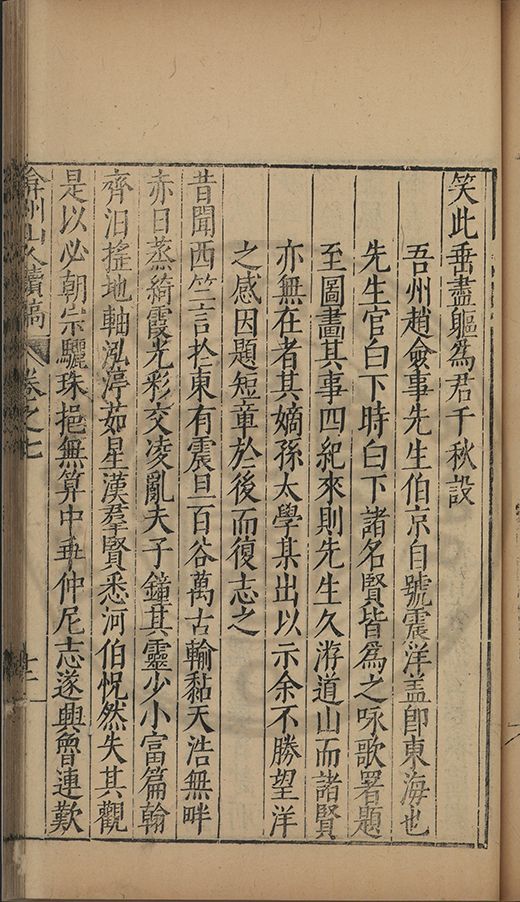 笑此垂盡軀為君千秋設
吾州趙僉事先生伯京自號震洋盖卽東海也
先生官白下時白下諸名賢皆為之咏歌署題
至圖畫其事四紀來則先生久游道山而諸賢
亦無在者其嫡孫太學某出以示余不勝望洋
之感因題短章於後而復志之
昔聞西竺言於東有震旦百谷萬古輸黏天浩無畔
赤日蒸綺霞光彩交凌亂夫子鐘其靈少小富篇翰
齊汨搖地軸泓渟茹星漢羣賢悉河伯怳然失其觀
是以必朝宗驪珠挹無算中垂仲尼志遂興魯連歎
弇州山人續稿
卷之七
十一